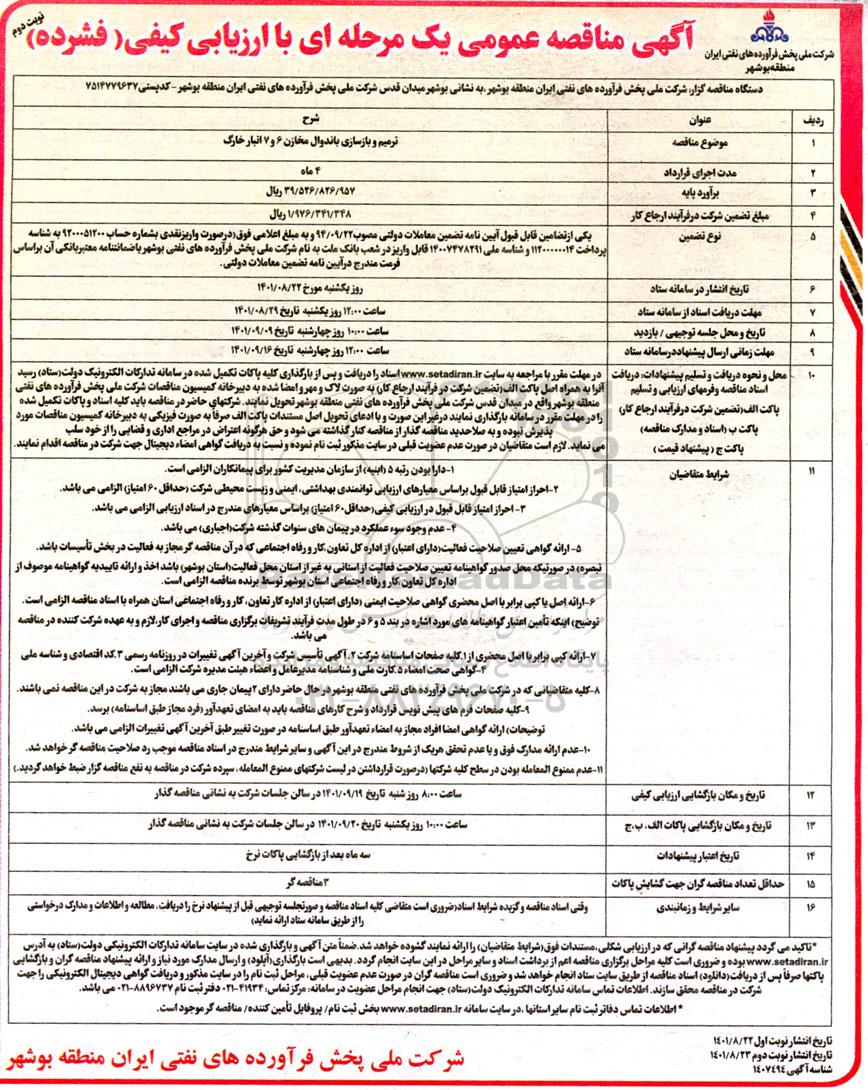 نوبت دوم
شرکت ملی پخش فرآورده های نفتی ایران
منطقه بوشهر
آگهی مناقصه عمومی یک مرحله ای با ارزیابی کیفی( فشرده)
دستگاه مناقصه گزار: شرکت ملی پخش فرآورده های نفتی ایران منطقه بوشهر ،به نشانی بوشهر میدان قدس شرکت ملی پخش فرآورده های نفتی ایران منطقه بوشهر -کدپستی ۷۵۱۴۷۷۹۶۳۷
ردیف عنوان شرح
۱ موضوع مناقصه ترمیم و بازسازی باندوال مخازن ۶ و ۷ انبار خارگ
۲ مدت اجرای قرارداد ۴ ماه
۳ برآورد پایه ۳۹/۵۲۶/۸۲۶/۹۵۷ ریال
۴ مبلغ تضمین شرکت درفرآیند ارجاع کار ۱/۹۷۶/۳۴۱/۳۴۸ ریال
۵ نوع تضمین یکی ازتضامین قابل قبول آیین نامه تضمین معاملات دولتی مصوب ۹۴/۰۹/۲۲ و به مبلغ اعلامی فوق(درصورت واریزنقدی بشماره حساب ۹۲۰۰۰۵۱۲۰۰ به شناسه
پرداخت ۱۱۲۰۰۰۰۰۰۱۴ و شناسه ملی ۱۴۰۰۷۴۷۸۲۹۱ قابل واریز در شعب بانک ملت به نام شرکت ملی پخش فرآورده های نفتی بوشهر یا ضمانتنامه معتبربانکی آن براساس
فرمت مندرج درآیین نامه تضمین معاملات دولتی.
۶ تاریخ انتشار در سامانه ستاد روز یکشنبه مورخ ۱۴۰۱/۰۸/۲۲
۷ مهلت دریافت اسناد از سامانه ستاد ساعت ۱۲:۰۰ روز یکشنبه تاریخ ۱۴۰۱/۰۸/۲۹
۸ تاریخ و محل جلسه توجیهی / بازدید ساعت ۱۰:۰۰ روز چهارشنبه تاریخ ۱۴۰۱/۰۹/۰۹
۹ مهلت زمانی ارسال پیشنهاددرسامانه ستاد ساعت ۱۲:۰۰ روز چهارشنبه تاریخ ۱۴۰۱/۰۹/۱۶
۱۰ محل و نحوه دریافت و تسلیم پیشنهادات: دریافت
اسناد مناقصه وفرمهای ارزیابی و تسلیم
پاکت الف(تضمین شرکت درفرآیند ارجاع کار)
پاکت ب (اسناد و مدارک مناقصه)
پاکت ج ( پیشنهاد قیمت )
در مهلت مقرر با مراجعه به سایت www.setadiran.ir اسناد را دریافت و پس از بارگذاری کلیه پاکات تکمیل شده در سامانه تدارکات الکترونیک دولت(ستاد) رسید
آنرا به همراه اصل پاکت الف(تضمین شرکت در فرآیند ارجاع کار) به صورت لاک و مهر و امضا شده به دبیرخانه کمیسیون مناقصات شرکت ملی پخش فرآورده های نفتی
منطقه بوشهر واقع در میدان قدس شرکت ملی پخش فرآورده های نفتی منطقه بوشهر تحویل نمایند. شرکتهای حاضر در مناقصه باید کلیه اسناد و پاکات تکمیل شده
را در مهلت مقرر در سامانه بارگذاری نمایند درغیر این صورت و با ادعای تحویل اصل مستندات پاکت الف صرفاً به صورت فیزیکی به دبیرخانه کمیسیون مناقصات مورد
پذیرش نبوده و به صلاحدید مناقصه گذار از مناقصه کنار گذاشته می شود و حق هرگونه اعتراض در مراجع اداری و قضایی را از خود سلب
می نماید. لازم است متقاضیان در صورت عدم عضویت قبلی در سایت مذکور ثبت نام نموده و نسبت به دریافت گواهی امضاء دیجیتال جهت شرکت در مناقصه اقدام نمایند.
۱۱ شرایط متقاضیان ۱-دارا بودن رتبه ۵ (ابنیه) از سازمان مدیریت کشور برای پیمانکاران الزامی است.
۲-احراز امتیاز قابل قبول براساس معیارهای ارزیابی توانمندی بهداشتی، ایمنی و زیست محیطی شرکت (حداقل ۶۰ امتیاز) الزامی می باشد.
۳ - احراز امتیاز قابل قبول در ارزیابی کیفی(حداقل ۶۰ امتیاز) براساس معیارهای مندرج در اسناد ارزیابی الزامی می باشد.
۴- عدم وجود سوء عملکرد در پیمان های سنوات گذشته شرکت(اجباری) می باشد.
۵- ارائه گواهی تعیین صلاحیت فعالیت(دارای اعتبار) از اداره کل تعاون،کار و رفاه اجتماعی که در آن مناقصه گر مجاز به فعالیت در بخش تأسیسات باشد.
تبصره) در صورتیکه محل صدور گواهینامه تعیین صلاحیت فعالیت از استانی به غیر از استان محل فعالیت(استان بوشهر) باشد اخذ و ارائه تاییدیه گواهینامه موصوف از
اداره کل تعاون،کار و رفاه اجتماعی استان بوشهر توسط برنده مناقصه الزامی است.
۶-ارائه اصل یا کپی برابر با اصل محضری گواهی صلاحیت ایمنی (دارای اعتبار) از اداره کار تعاون، کار و رفاه اجتماعی استان همراه با اسناد مناقصه الزامی است.
توضیح) اینکه تأمین اعتبار گواهینامه های مورد اشاره در بند ۵ و ۶ در طول مدت فرآیند تشریفات برگزاری مناقصه و اجرای کار،لازم و به عهده شرکت کننده در مناقصه
می باشد.
۷-ارائه کپی برابر با اصل محضری از ۱.کلیه صفحات اساسنامه شرکت ۲. آگهی تأسیس شرکت و آخرین آگهی تغییرات در روزنامه رسمی ۳.کد اقتصادی و شناسه ملی
۴-گواهی صحت امضاء ۵.کارت ملی و شناسنامه مدیرعامل و اعضاء هیئت مدیره شرکت الزامی است.
۸-کلیه متقاضیانی که در شرکت ملی پخش فرآورده های نفتی منطقه بوشهر در حال حاضر دارای ۲ پیمان جاری می باشند مجاز به شرکت در این مناقصه نمی باشند.
۹-کلیه صفحات فرم های پیش نویس قرارداد و شرح کارهای مناقصه باید به امضای تعهدآور (فرد مجاز طبق اساسنامه) برسد.
توضیحات) ارائه گواهی امضا افراد مجاز به امضاء تعهدآور طبق اساسنامه در صورت تغییر طبق آخرین آگهی تغییرات الزامی می باشد.
۱۰-عدم ارائه مدارک فوق و یا عدم تحقق هریک از شروط مندرج در این آگهی و سایر شرایط مندرج در اسناد مناقصه موجب رد صلاحیت مناقصه گر خواهد شد.
۱۱-عدم ممنوع المعامله بودن در سطح کلیه شرکتها (درصورت قرارداشتن در لیست شرکتهای ممنوع المعامله، سپرده شرکت در مناقصه به نفع مناقصه گزار ضبط خواهد گردید.)
۱۲ تاریخ و مکان بازگشایی ارزیابی کیفی ساعت ۸:۰۰ روز شنبه تاریخ ۱۴۰۱/۰۹/۱۹ در سالن جلسات شرکت به نشانی مناقصه گذار
۱۳ تاریخ و مکان بازگشایی پاکات الف، ب،ج ساعت ۱۰:۰۰ روز یکشنبه تاریخ ۱۴۰۱/۰۹/۲۰ در سالن جلسات شرکت به نشانی مناقصه گذار
۱۴ تاریخ اعتبار پیشنهادات سه ماه بعد از بازگشایی پاکات نرخ
۱۵ حداقل تعداد مناقصه گران جهت گشایش پاکات ۳ مناقصه گر
۱۶ سایر شرایط و زمانبندی وقتی اسناد مناقصه و گزیده شرایط اسناد(ضروری است متقاضی کلیه اسناد مناقصه و صورتجلسه توجیهی قبل از پیشنهاد نرخ را دریافت، مطالعه و اطلاعات و مدارک درخواستی
را از طریق سامانه ستاد ارائه نماید)
*تاکید می گردد پیشنهاد مناقصه گرانی که در ارزیابی شکلی،مستندات فوق(شرایط متقاضیان) را ارائه نمایند گشوده خواهد شد.ضمناً متن آگهی و بارگذاری شده در سایت سامانه تدارکات الکترونیکی دولت(ستاد) به آدرس
www.setadiran.ir بوده و ضروری است کلیه مراحل برگزاری مناقصه اعم از برداشت اسناد و سایر مراحل در این سایت انجام گردد. بدیهی است بارگذاری(آپلود) و ارسال مدارک مورد نیاز و ارائه پیشنهاد مناقصه گران و بازگشایی
پاکتها صرفاً پس از دریافت(دانلود) اسناد مناقصه از طریق سایت ستاد انجام خواهد شد و ضروری است مناقصه گران در صورت عدم عضویت قبلی، مراحل ثبت نام را در سایت مذکور و دریافت گواهی دیجیتال الکترونیکی را جهت
شرکت در مناقصه محقق سازند. اطلاعات تماس سامانه تدارکات الکترونیک دولت(ستاد) جهت انجام مراحل عضویت در سامانه: مرکز تماس: ۴۱۹۳۴-۰۲۱ دفتر ثبت نام ۸۸۹۶۷۳۷-۰۲۱ می باشد.
* اطلاعات تماس دفاتر ثبت نام سایر استانها ،در سایت سامانه www.setadiran.ir بخش ثبت نام/ پروفایل تأمین کننده/ مناقصه گر موجود است.
تاریخ انتشار نوبت اول ۱۴۰۱/۸/۲۲
تاریخ انتشار نوبت دوم ۱۴۰۱/۸/۲۳
شناسه آگهی ۱۴۰۷۴۹۴
شرکت ملی پخش فرآورده های نفتی ایران منطقه بوشهر